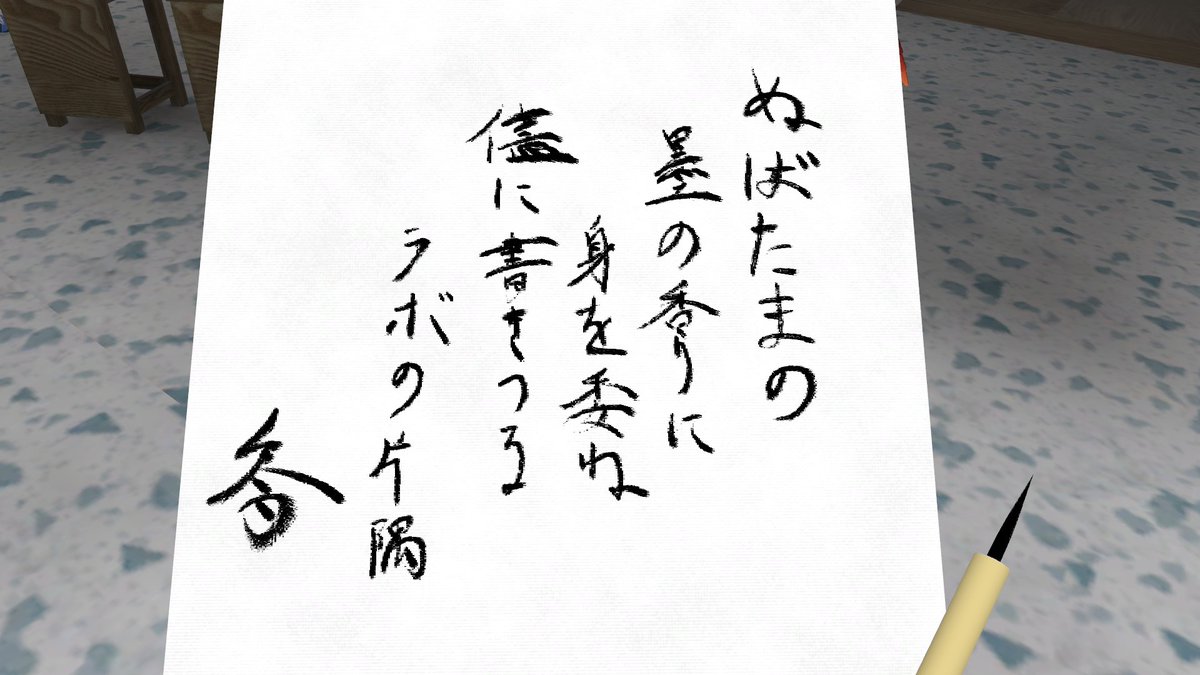 ぬばたまの
墨の香りに
身を委ね
儘に書きつる
ラボの片隅